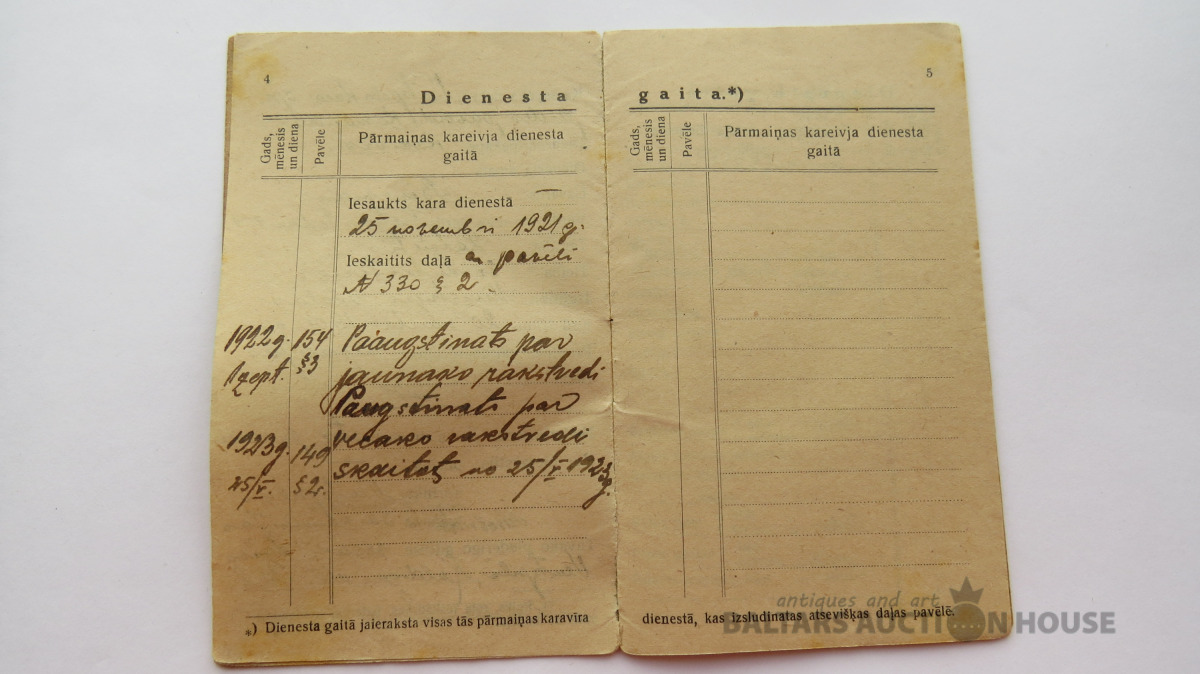 4
Dienesta
Gads, mēnesis un diena
Pavēle
Pārmaiņas kareivja dienesta
gaitā
Iesaukts kara dienestā —
25 novembri 1921 g.
Ieskaitits daļā ar pavēli
N 330 § 2
1922 g. 154 Paaugstinats par
1 sept. §3 jaunako rakstvedi
Paugstinats par
1923 g. 149 vecako rakstvedi
25/V. §2. skaitot no 25/V 1923 g.
*) Dienesta gaitā jaieraksta visas tās pārmaiņas karavīra
5
gaita.*)
Gads, mēnesis un diena
Pavēle
Pārmaiņas kareivja dienesta
gaitā
dienestā, kas izsludinatas atsevišķas daļas pavēlē.
antiques and art
BALTARS AUCTION HOUSE